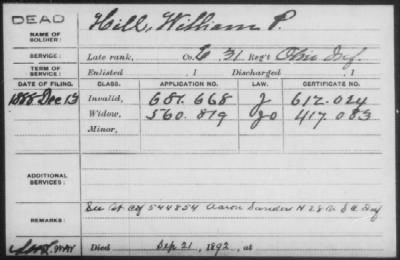 DEAD
NAME OF SOLDIER: Hill, William P.
SERVICE: Late rank, Co. E 31 Reg't Ohio Inf.
TERM OF SERVICE: Enlisted , 1 Discharged , 1
DATE OF FILING. CLASS. APPLICATION NO. LAW. CERTIFICATE NO.
1888 Dec 13 Invalid, 681.668 J 612.024
Widow, 560.879 go 417.083
Minor,
ADDITIONAL SERVICES:
REMARKS: See Ct Cy 544854 Aaron Sanders H 28 U.S.C. Inf
Died Sep 21, 1892, at